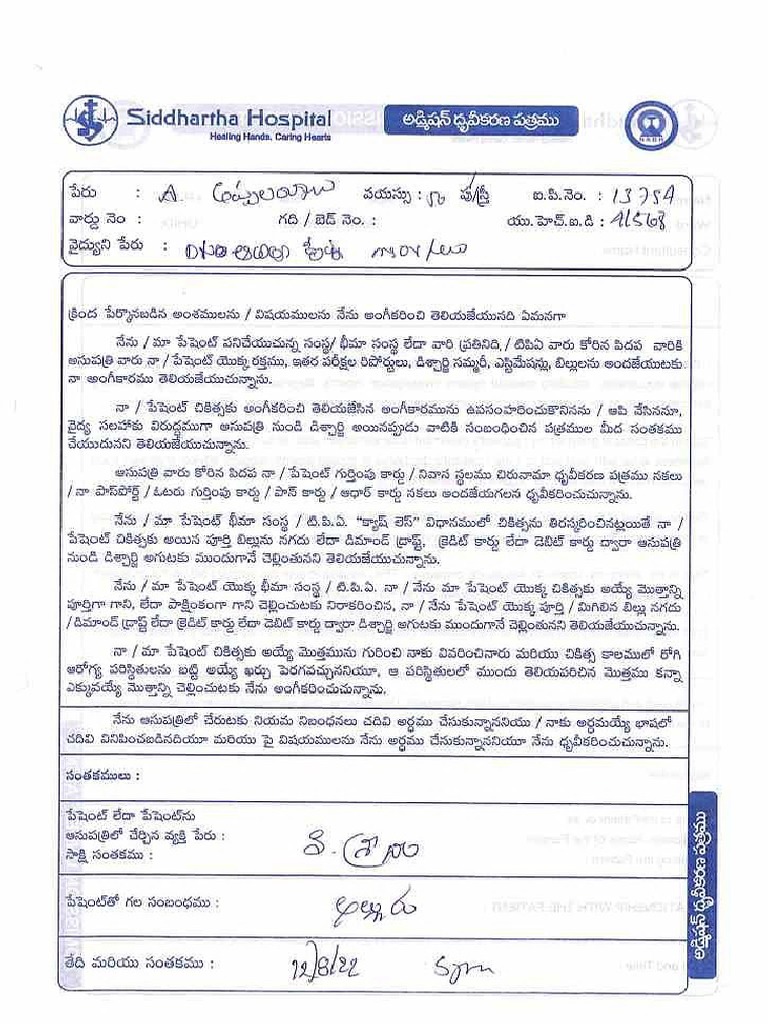 Siddhartha Hospital
Healing Hands. Caring Hearts
అడ్మిషన్ ధృవీకరణ పత్రము
NABH
పేరు : A. అప్పలరాజు వయస్సు : పు/స్త్రీ ఐ.పి.నెం. : 13754
వార్డు నెం : గది / బెడ్ నెం. : యు.హెచ్.ఐ.డి : 41568
వైద్యుని పేరు :
క్రింద పేర్కొనబడిన అంశములను / విషయములను నేను అంగీకరించి తెలియజేయునది ఏమనగా
నేను / మా పేషెంట్ పనిచేయుచున్న సంస్థ/ భీమా సంస్థ లేదా వారి ప్రతినిది, / టిపిఏ వారు కోరిన పిదప వారికి
ఆసుపత్రి వారు నా / పేషెంట్ యొక్క రక్తము, ఇతర పరీక్షల రిపోర్టులు, డిశ్చార్జి సమ్మరీ, ఎస్టిమేషన్ను, బిల్లులను అందజేయుటకు
నా అంగీకారము తెలియజేయుచున్నాను.
నా / పేషెంట్ చికిత్సకు అంగీకరించి తెలియజేసిన అంగీకారమును ఉపసంహరించుకొనినను / ఆపి వేసినను,
వైద్య సలహాకు విరుద్ధముగా ఆసుపత్రి నుండి డిశ్చార్జి అయినప్పుడు వాటికి సంబంధించిన పత్రముల మీద సంతకము
చేయుదునని తెలియజేయుచున్నాను.
ఆసుపత్రి వారు కోరిన పిదప నా / పేషెంట్ గుర్తింపు కార్డు / నివాస స్థలము చిరునామా ధృవీకరణ పత్రము నకలు
/ నా పాస్‌పోర్ట్ / ఓటరు గుర్తింపు కార్డు / పాన్ కార్డు / ఆధార్ కార్డు నకలు అందజేయగలన ధృవీకరించుచున్నాను.
నేను / మా పేషెంట్ భీమా సంస్థ / టి.పి.ఏ. "క్యాష్ లెస్" విధానములో చికిత్సను తిరస్కరించినట్లయితే నా /
పేషెంట్ చికిత్సకు అయిన పూర్తి బిల్లును నగదు లేదా డిమాండ్ డ్రాఫ్ట్, క్రెడిట్ కార్డు లేదా డెబిట్ కార్డు ద్వారా ఆసుపత్రి
నుండి డిశ్చార్జి అగుటకు ముందుగానే చెల్లింతునని తెలియజేయుచున్నాను.
నేను / మా పేషెంట్ యొక్క భీమా సంస్థ / టి.పి.ఏ. నా / నేను మా పేషెంట్ యొక్క చికిత్సకు అయ్యే మొత్తాన్ని
పూర్తిగా గాని, లేదా పాక్షికంగా గాని చెల్లించుటకు నిరాకరించిన, నా / నేను పేషెంట్ యొక్క పూర్తి / మిగిలిన బిల్లు నగదు
/డిమాండ్ డ్రాఫ్ట్ లేదా క్రెడిట్ కార్డు లేదా డెబిట్ కార్డు ద్వారా డిశ్చార్జి అగుటకు ముందుగానే చెల్లింతునని తెలియజేయుచున్నాను.
నా / మా పేషెంట్ చికిత్సకు అయ్యే మొత్తమును గురించి నాకు వివరించినారు మరియు చికిత్స కాలములో రోగి
ఆరోగ్య పరిస్థితులను బట్టి అయ్యే ఖర్చు పెరగవచ్చుననియూ, ఆ పరిస్థితులలో ముందు తెలియపరిచిన మొత్తము కన్నా
ఎక్కువయ్యే మొత్తాన్ని చెల్లించుటకు నేను అంగీకరించుచున్నాను.
నేను ఆసుపత్రిలో చేరుటకు నియమ నిబంధనలు చదివి అర్ధము చేసుకున్నాననియు / నాకు అర్ధమయ్యే భాషలో
చదివి వినిపించబడినదియూ మరియు పై విషయములను నేను అర్ధము చేసుకున్నాననియూ నేను ధృవీకరించుచున్నాను.
సంతకములు :
పేషెంట్ లేదా పేషెంట్‌ను
ఆసుపత్రిలో చేర్చిన వ్యక్తి పేరు :
సాక్షి సంతకము :
పేషెంట్‌తో గల సంబంధము : అల్లుడు
తేది మరియు సంతకము : 12/8/22
అడ్మిషన్ ధృవీకరణ పత్రము